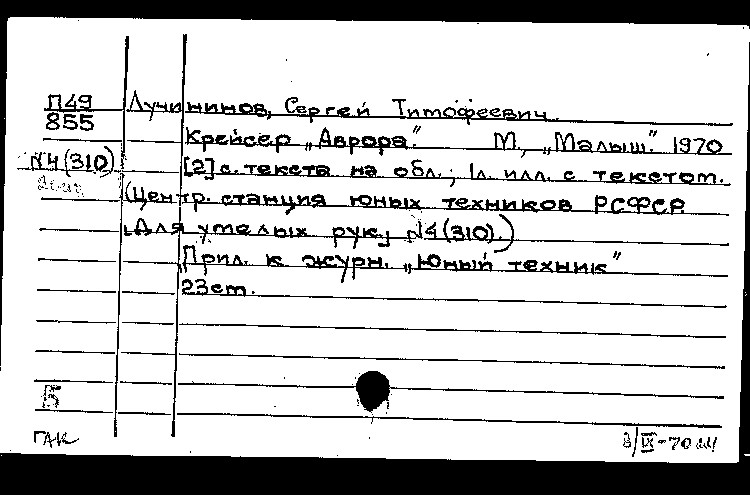 П49 Лучининов, Сергей Тимофеевич
855
Крейсер „Аврора". М., „Малыш". 1970
N4(310) [2]с. текста на обл.; 1л. илл. с текстом.
(Центр. станция юных техников РСФСР
„Для умелых рук„ N4(310).)
Прил. к журн. „Юный техник"
23см.
Б
ГАК
3/IX-70